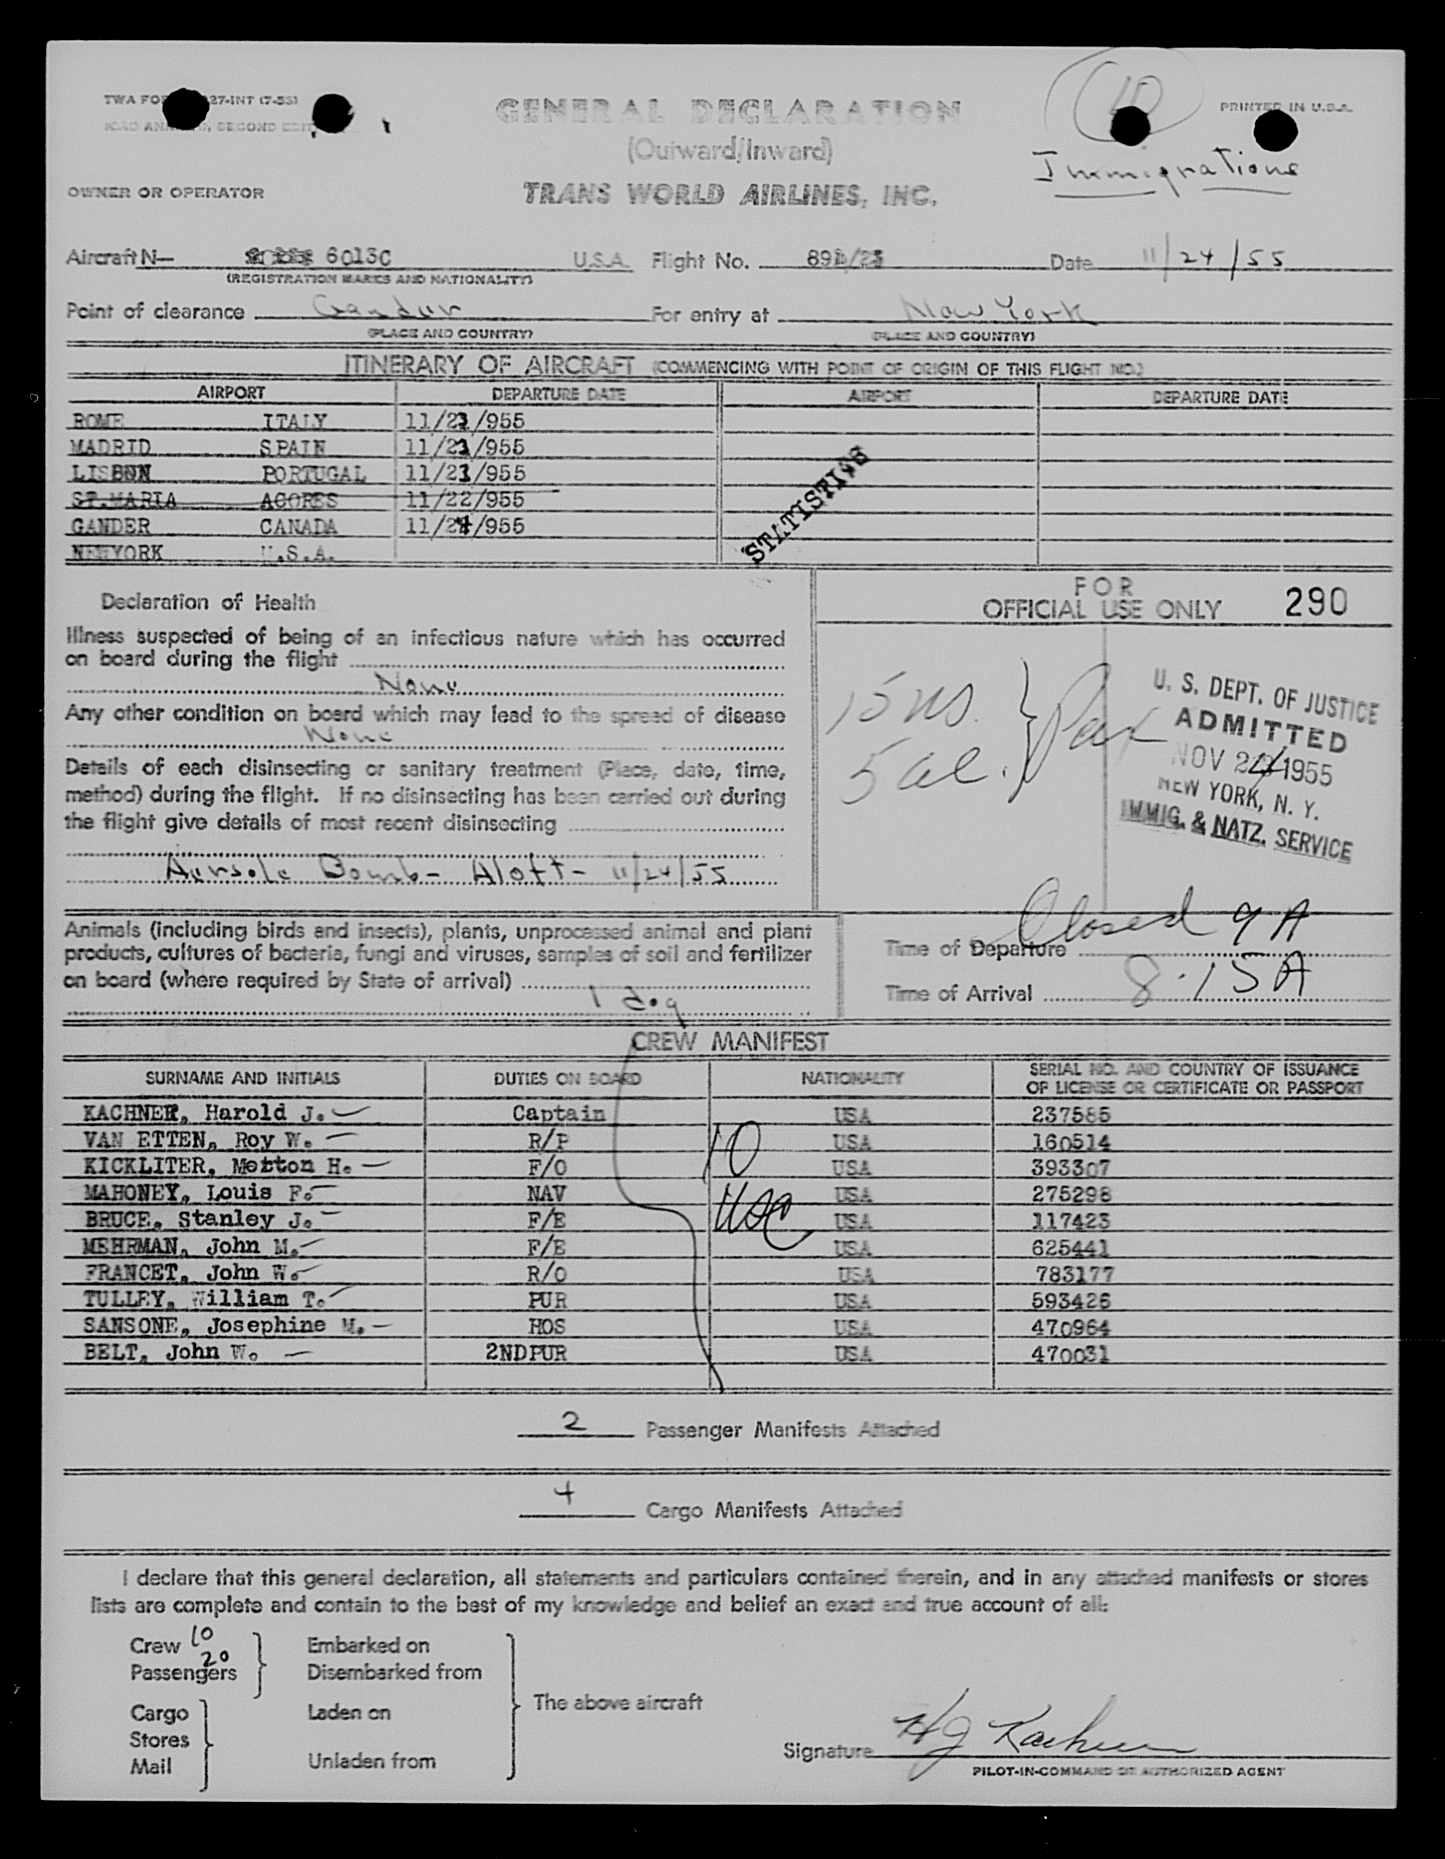 TWA FO 27-INT (7-55)
GENERAL DECLARATION
10
PRINTED IN U.S.A.
SECOND
(Outward/Inward)
Immigrations
OWNER OR OPERATOR
TRANS WORLD AIRLINES, INC.
Aircraft N— 6013C U.S.A. Flight No. Date 11/24/55
(REGISTRATION MARKS AND NATIONALITY)
Point of clearance Gander For entry at New York
(PLACE AND COUNTRY) (PLACE AND COUNTRY)
ITINERARY OF AIRCRAFT (COMMENCING WITH POINT OF ORIGIN OF THIS FLIGHT NO.)
AIRPORT DEPARTURE DATE AIRPORT DEPARTURE DATE
ROME ITALY 11/23/955
MADRID SPAIN 11/23/955
LISBON PORTUGAL 11/23/955
ST.MARIA ACORES 11/22/955
GANDER CANADA 11/24/955
NEWYORK U.S.A.
STATISTICS
FOR
OFFICIAL USE ONLY 290
Declaration of Health
Illness suspected of being of an infectious nature which has occurred
on board during the flight
None
Any other condition on board which may lead to the spread of disease
None
Details of each disinsecting or sanitary treatment (Place, date, time,
method) during the flight. If no disinsecting has been carried out during
the flight give details of most recent disinsecting
Aersole Bomb - Aloft - 11/24/55
15 us.
5 al.
U. S. DEPT. OF JUSTICE
ADMITTED
NOV 24 1955
NEW YORK, N. Y.
IMMIG. & NATZ. SERVICE
Animals (including birds and insects), plants, unprocessed animal and plant
products, cultures of bacteria, fungi and viruses, samples of soil and fertilizer
on board (where required by State of arrival)
1 dog
Time of Departure Closed 9 A
Time of Arrival 8:15 A
CREW MANIFEST
SURNAME AND INITIALS DUTIES ON BOARD NATIONALITY SERIAL NO. AND COUNTRY OF ISSUANCE
OF LICENSE OR CERTIFICATE OR PASSPORT
KACHNER, Harold J. Captain USA 237585
VAN ETTEN, Roy W. R/P USA 160514
KICKLITER, Motton H. F/O USA 393307
MAHONEY, Louis F. NAV USA 275298
BRUCE, Stanley J. F/E USA 117423
MEHRMAN, John M. F/E USA 625441
FRANCET, John W. R/O USA 783177
TULLEY, William T. PUR USA 593426
SANSONE, Josephine M. HOS USA 470964
BELT, John W. 2NDPUR USA 470031
10
USC
2 Passenger Manifests Attached
4 Cargo Manifests Attached
I declare that this general declaration, all statements and particulars contained therein, and in any attached manifests or stores
lists are complete and contain to the best of my knowledge and belief an exact and true account of all:
Crew 10 Embarked on
Passengers 20 Disembarked from
The above aircraft
Cargo Laden on
Stores
Mail Unladen from
Signature HJ Kachner
PILOT-IN-COMMAND OR AUTHORIZED AGENT